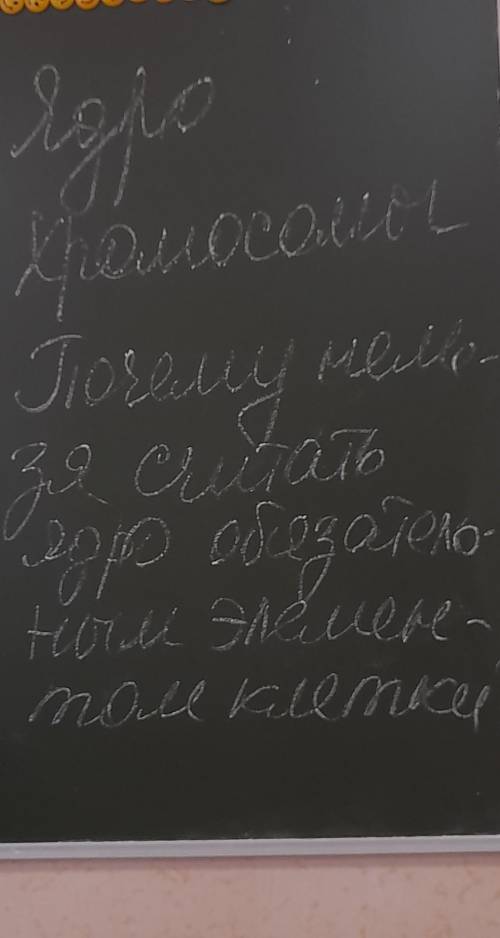 Ядро
Хромосомы
Почему нель-
зя считать
ядро обязатель-
ным элемен-
том клетки